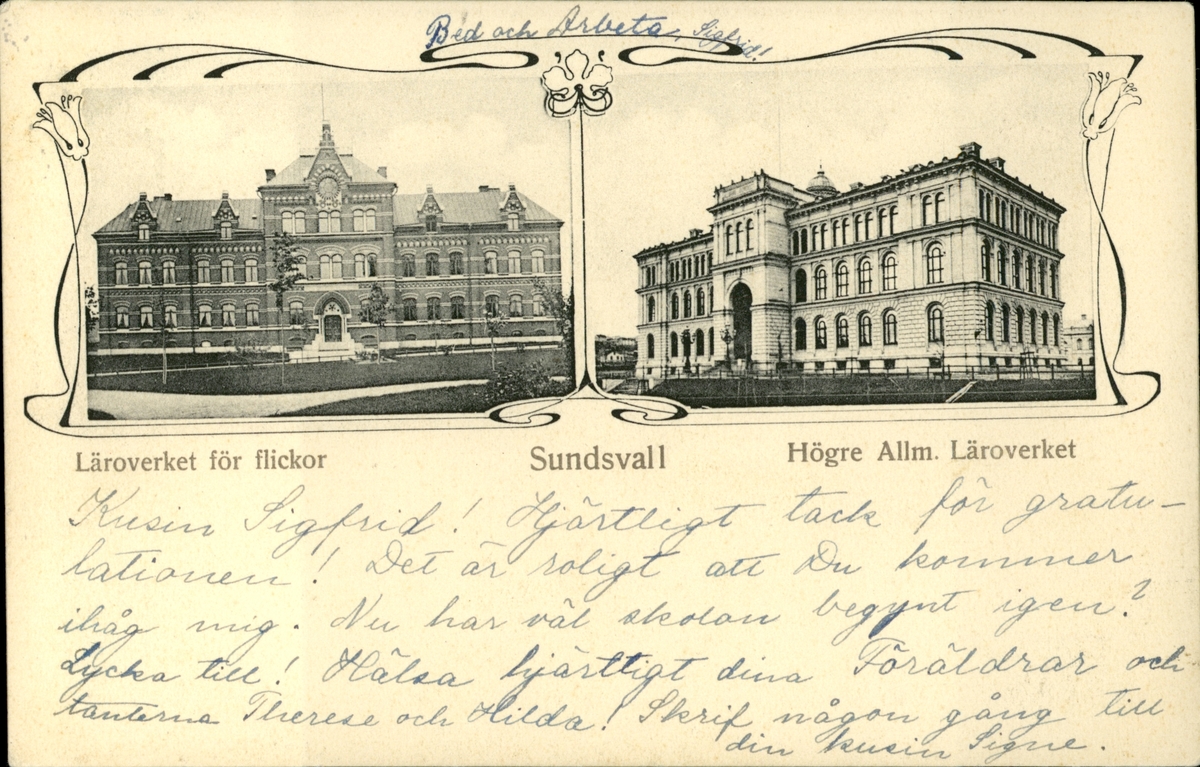 Bed och Arbeta, Sigfrid!
Läroverket för flickor
Sundsvall
Högre Allm. Läroverket
Kusin Sigfrid! Hjärtligt tack för gratu-
lationen! Det är roligt att Du kommer
ihåg mig. Nu har väl skolan begynt igen?
Lycka till! Hälsa hjärttigt dina Föräldrar och
tanterna Therese och Hilda! Skrif någon gång till
din kusin Signe.